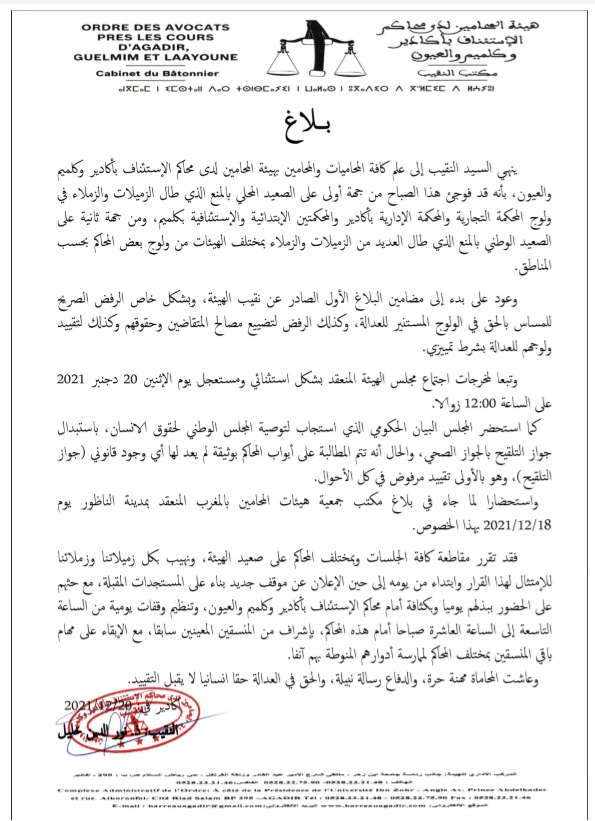 ORDRE DES AVOCATS
PRES LES COURS
D'AGADIR,
GUELMIM ET LAAYOUNE
Cabinet du Bâtonnier
هيئة المحامين لدى محاكم
الإستئناف بأكادير
وكلميم والعيون
مكتب النقيب
بلاغ
ينهي السيد النقيب إلى علم كافة المحاميات والمحامين بهيئة المحامين لدى محاكم الإستئناف بأكادير وكلميم
والعيون، بأنه قد فوجئ هذا الصباح من جهة أولى على الصعيد المحلي بالمنع الذي طال الزميلات والزملاء في
ولوج المحكمة التجارية والمحكمة الإدارية بأكادير والمحكمتين الإبتدائية والإستئنافية بكلميم، ومن جهة ثانية على
الصعيد الوطني بالمنع الذي طال العديد من الزميلات والزملاء بمختلف الهيئات من ولوج بعض المحاكم بحسب
المناطق.
وعود على بدء إلى مضامين البلاغ الأول الصادر عن نقيب الهيئة، وبشكل خاص الرفض الصريح
للمساس بالحق في الولوج المستنير للعدالة، وكذلك الرفض لتضييع مصالح المتقاضين وحقوقهم وكذلك لتقييد
ولوجهم للعدالة بشرط تمييزي.
وتبعا لمخرجات اجتماع مجلس الهيئة المنعقد بشكل استثنائي ومستعجل يوم الإثنين 20 دجنبر 2021
على الساعة 12:00 زوالا.
كما استحضر المجلس البيان الحكومي الذي استجاب لتوصية المجلس الوطني لحقوق الانسان، باستبدال
جواز التلقيح بالجواز الصحي، والحال أنه تتم المطالبة على أبواب المحاكم بوثيقة لم يعد لها أي وجود قانوني (جواز
التلقيح)، وهو بالأولى تقييد مرفوض في كل الأحوال.
واستحضارا لما جاء في بلاغ مكتب جمعية هيئات المحامين بالمغرب المنعقد بمدينة الناظور يوم
2021/12/18 بهذا الخصوص.
فقد تقرر مقاطعة كافة الجلسات وبمختلف المحاكم على صعيد الهيئة، ونهيب بكل زميلاتنا وزملائنا
للإمتثال لهذا القرار وابتداء من يومه إلى حين الإعلان عن موقف جديد بناء على المستجدات المقبلة، مع حثهم
على الحضور ببذلهم يوميا وبكثافة أمام محاكم الإستئناف بأكادير وكلميم والعيون، وتنظيم وقفات يومية من الساعة
التاسعة إلى الساعة العاشرة صباحا أمام هذه المحاكم، بإشراف من المنسقين المعينين سابقا، مع الإبقاء على مهام
باقي المنسقين بمختلف المحاكم لممارسة أدوارهم المنوطة بهم آنفا.
وعاشت المحاماة مهنة حرة، والدفاع رسالة نبيلة، والحق في العدالة حقا انسانيا لا يقبل التقييد.
أكادير في 2021/12/20
النقيب: ذ. نور الدين خليل
Complexe Administratif de l'Ordre: A côté de la Présidence de l'Université Ibn Zohr - Angle Av. Prince Abdelkader
et rue Alkoronfol- Cité Riad Salam BP 295 -AGADIR Tél : 0528.23.21.48 - 0528.22.75.90 - Fax : 0528.23.21.46
E-mail : barreauagadir@gmail.com البريد الإلكتروني www.barreauagadir.com الموقع الإلكتروني